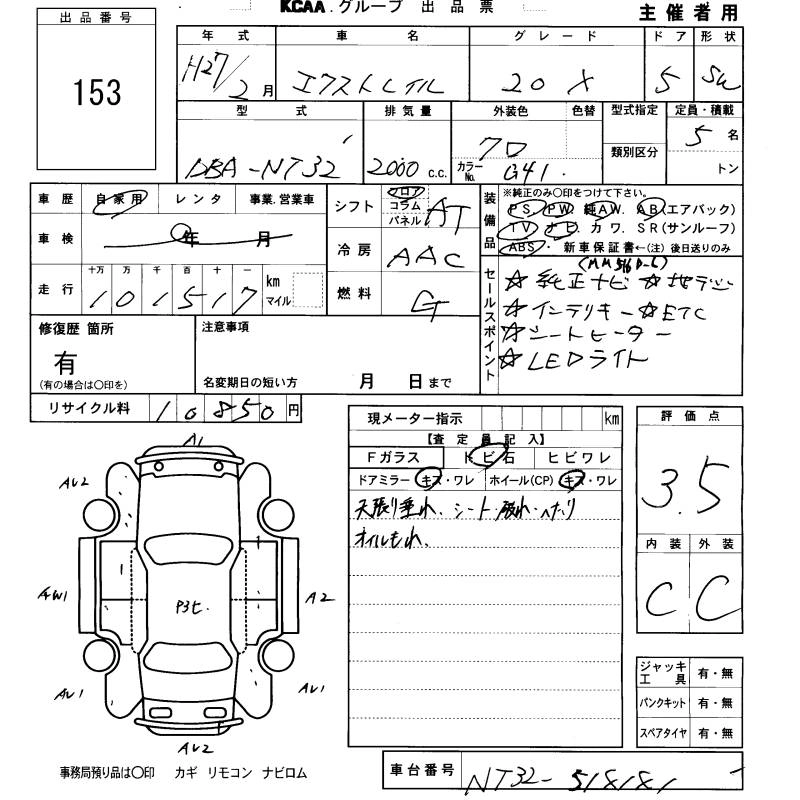 KCAA.グループ 出品票
主催者用
出品番号
153
年式 車名 グレード ドア 形状
H27/2月 エクストレイル 20X 5 SW
型式 排気量 外装色 色替 型式指定 定員・積載
類別区分
DBA-NT32 2000 c.c. カラーNo. G41 5名
トン
車歴 自家用 レンタ 事業.営業車
車検 年 月
走行 十万 万 千 百 十 一
101517 km マイル
シフト フロア コラム パネル AT
冷房 AAC
燃料 G
装備品 ※純正のみ〇印をつけて下さい。
PS. PW. 純AW. AB(エアバック)
TV. ナビ. カワ. SR(サンルーフ)
ABS. 新車保証書←(注)後日送りのみ
セールスポイント
☆純正ナビ ☆地デジ
☆インテリキー ☆ETC
☆シートヒーター
☆LEDライト
修復歴 箇所
有
(有の場合は〇印を)
注意事項
名変期日の短い方 月 日まで
リサイクル料 10850円
現メーター指示 km
【査定員記入】
Fガラス トビ石 ヒビワレ
ドアミラー キズ・ワレ ホイール(CP) キズ・ワレ
天張り垂れ、シート破れ・へたり
オイルもれ、
評価点
3.5
内装 外装
C C
ジャッキ工具 有・無
パンクキット 有・無
スペアタイヤ 有・無
A1
AU2
A2
AU1
AU1
AU2
事務局預り品は〇印 カギ リモコン ナビロム
車台番号 NT32-518181